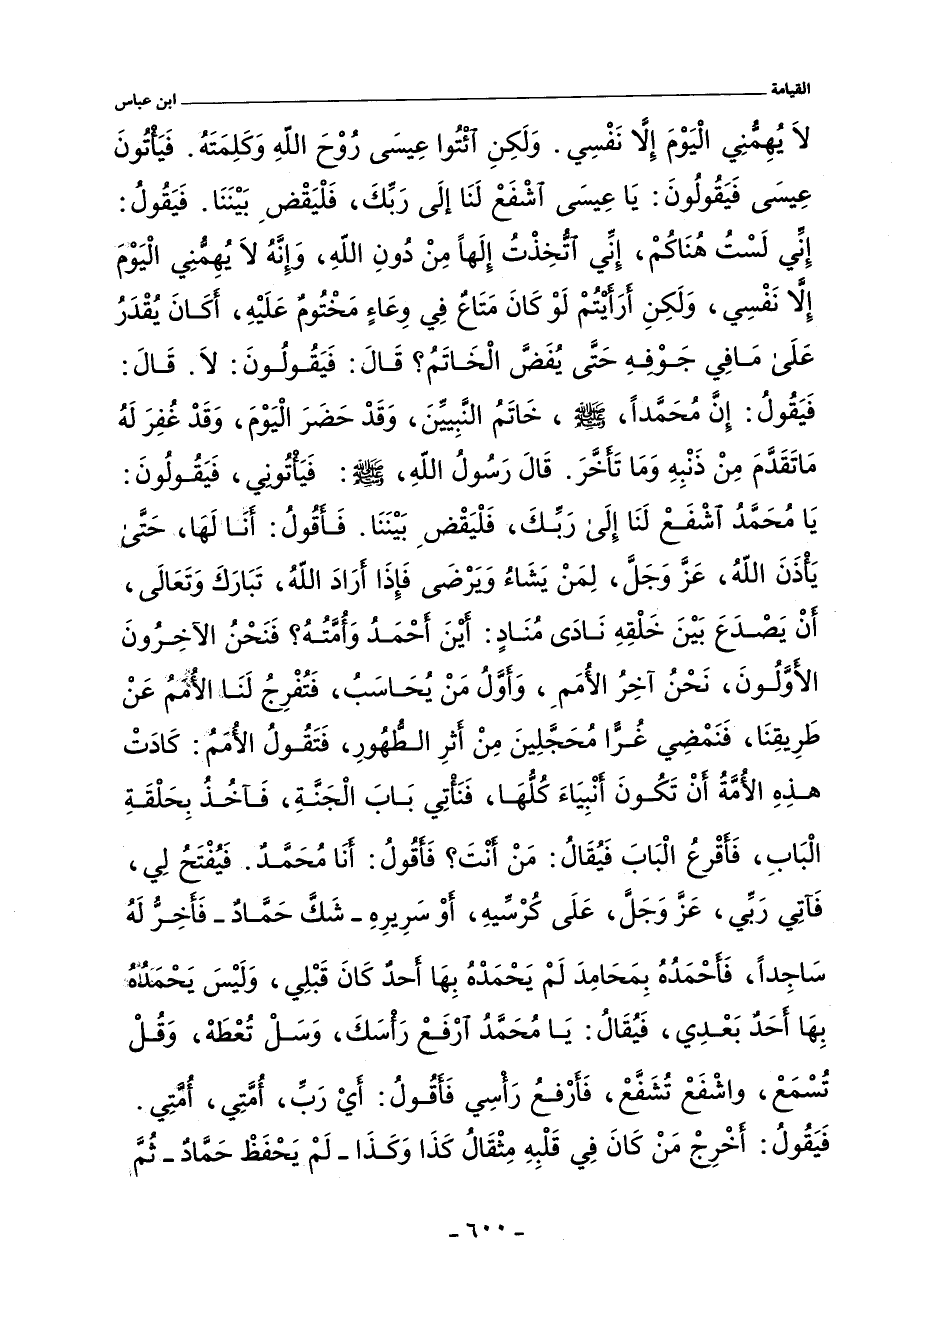 القيامة ــــــ ابن عباس
لاَ يُهِمُّنِي الْيَوْمَ إِلَّا نَفْسِي. وَلَكِنِ ٱئْتُوا عِيسَى رُوْحَ اللّهِ وَكَلِمَتَهُ. فَيَأْتُونَ
عِيسَى فَيَقُولُونَ: يَا عِيسَى ٱشْفَعْ لَنَا إلَى رَبِّكَ، فَلْيَقْضِ بَيْنَنَا. فَيَقُولُ:
إِنِّي لَسْتُ هُنَاكُمْ، إِنِّي ٱتُّخِذْتُ إِلَهاً مِنْ دُونِ اللّهِ، وَإِنَّهُ لاَ يُهِمُّنِي الْيَوْمَ
إِلَّا نَفْسِي، وَلَكِنِ أَرَأَيْتُمْ لَوْ كَانَ مَتَاعٌ فِي وِعَاءٍ مَخْتُومٌ عَلَيْهِ، أَكَانَ يُقْدَرُ
عَلَىٰ مَافِي جَوْفِهِ حَتَّى يُفَضَّ الْخَاتَمُ؟ قَالَ: فَيَقُولُونَ: لاَ. قَالَ:
فَيَقُولُ: إِنَّ مُحَمَّداً، ﷺ، خَاتَمُ النَّبِيِّينَ، وَقَدْ حَضَرَ الْيَوْمَ، وَقَدْ غُفِرَ لَهُ
مَاتَقَدَّمَ مِنْ ذَنْبِهِ وَمَا تَأَخَّرَ. قَالَ رَسُولُ اللّهِ، ﷺ: فَيَأْتُونِي، فَيَقُولُونَ:
يَا مُحَمَّدُ ٱشْفَعْ لَنَا إِلَىٰ رَبِّكَ، فَلْيَقْضِ بَيْنَنَا. فَأَقُولُ: أَنَا لَهَا، حَتَّىٰ
يَأْذَنَ اللّهُ، عَزَّ وَجَلَّ، لِمَنْ يَشَاءُ وَيَرْضَى فَإِذَا أَرَادَ اللّهُ، تَبَارَكَ وَتَعَالَى،
أَنْ يَصْدَعَ بَيْنَ خَلْقِهِ نَادَى مُنَادٍ: أَيْنَ أَحْمَدُ وَأُمَّتُهُ؟ فَنَحْنُ الآخِرُونَ
الأَوَّلُونَ، نَحْنُ آخِرُ الأُمَمِ، وَأَوَّلُ مَنْ يُحَاسَبُ، فَتُفْرِجُ لَنَا الأُمَمُ عَنْ
طَرِيقِنَا، فَنَمْضِي غُرًّا مُحَجَّلِينَ مِنْ أَثَرِ الطُّهُورِ، فَتَقُولُ الأُمَمُ: كَادَتْ
هذِهِ الأُمَّةُ أَنْ تَكُونَ أَنْبِيَاءَ كُلُّهَا، فَنَأْتِي بَابَ الْجَنَّةِ، فَآخُذُ بِحَلْقَةِ
الْبَابِ، فَأَقْرَعُ الْبَابَ فَيُقَالُ: مَنْ أَنْتَ؟ فَأَقُولُ: أَنَا مُحَمَّدٌ. فَيُفْتَحُ لِي،
فَآتِي رَبِّي، عَزَّ وَجَلَّ، عَلَى كُرْسِّيهِ، أَوْ سَرِيرِهِ - شَكَّ حَمَّادٌ - فَأَخِرُّ لَهُ
سَاجِداً، فَأَحْمَدُهُ بِمَحَامِدَ لَمْ يَحْمَدْهُ بِهَا أَحدٌ كَانَ قَبْلِي، وَلَيْسَ يَحْمَدُهُ
بِهَا أَحَدٌ بَعْدِي، فَيُقَالُ: يَا مُحَمَّدُ ٱرْفَعْ رَأْسَكَ، وَسَلْ تُعْطَهْ، وَقُلْ
تُسْمَعْ، واشْفَعْ تُشَفَّعْ، فَأَرْفعُ رَأْسِي فَأَقُولُ: أَيْ رَبِّ، أُمَّتِي، أُمَّتِي.
فَيَقُولُ: أَخْرِجْ مَنْ كَانَ فِي قَلْبِهِ مِثْقَالُ كَذَا وَكَذَا - لَمْ يَحْفَظْ حَمَّادٌ - ثُمَّ
- ٦٠٠ -